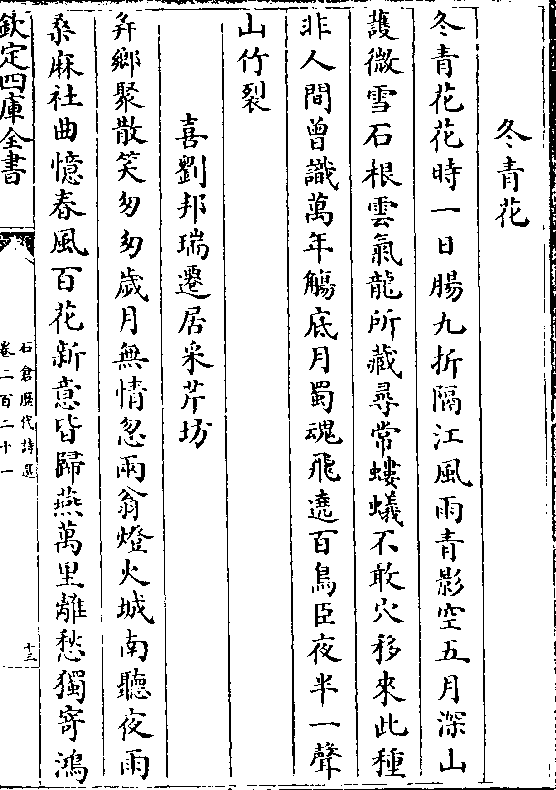 冬青花
冬青花花時一日腸九折隔江風雨青影空五月深山
護微雪石根雲氣龍所藏尋常螻蟻不敢穴移來此種
非人間曾識萬年觴底月蜀魂飛遶百鳥臣夜半一聲
山竹裂
喜劉邦瑞遷居采芹坊
弁鄉聚散笑匆匆歲月無情忽兩翁燈火城南聽夜雨
桑麻社曲憶春風百花新意皆歸燕萬里離愁獨寄鴻
欽定四庫全書
石倉歷代詩選
卷二百二十一
十三